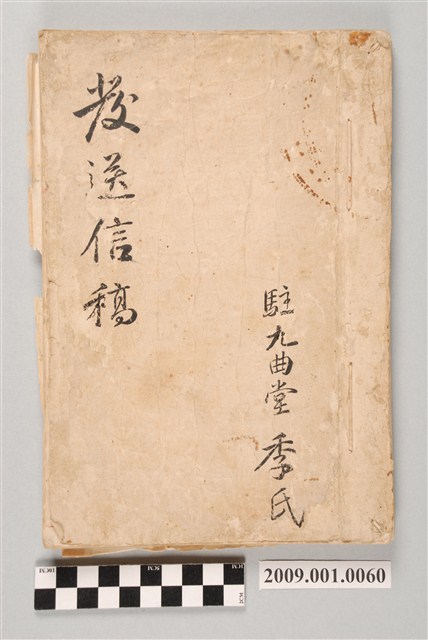 發送信稿
駐九曲堂 季氏
2009.001.0060